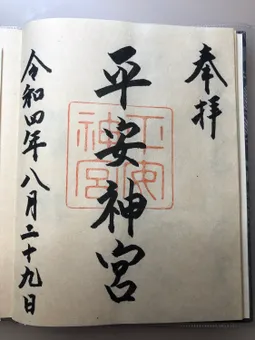 奉拝
平安神宮
平安神宮
令和四年八月二十九日